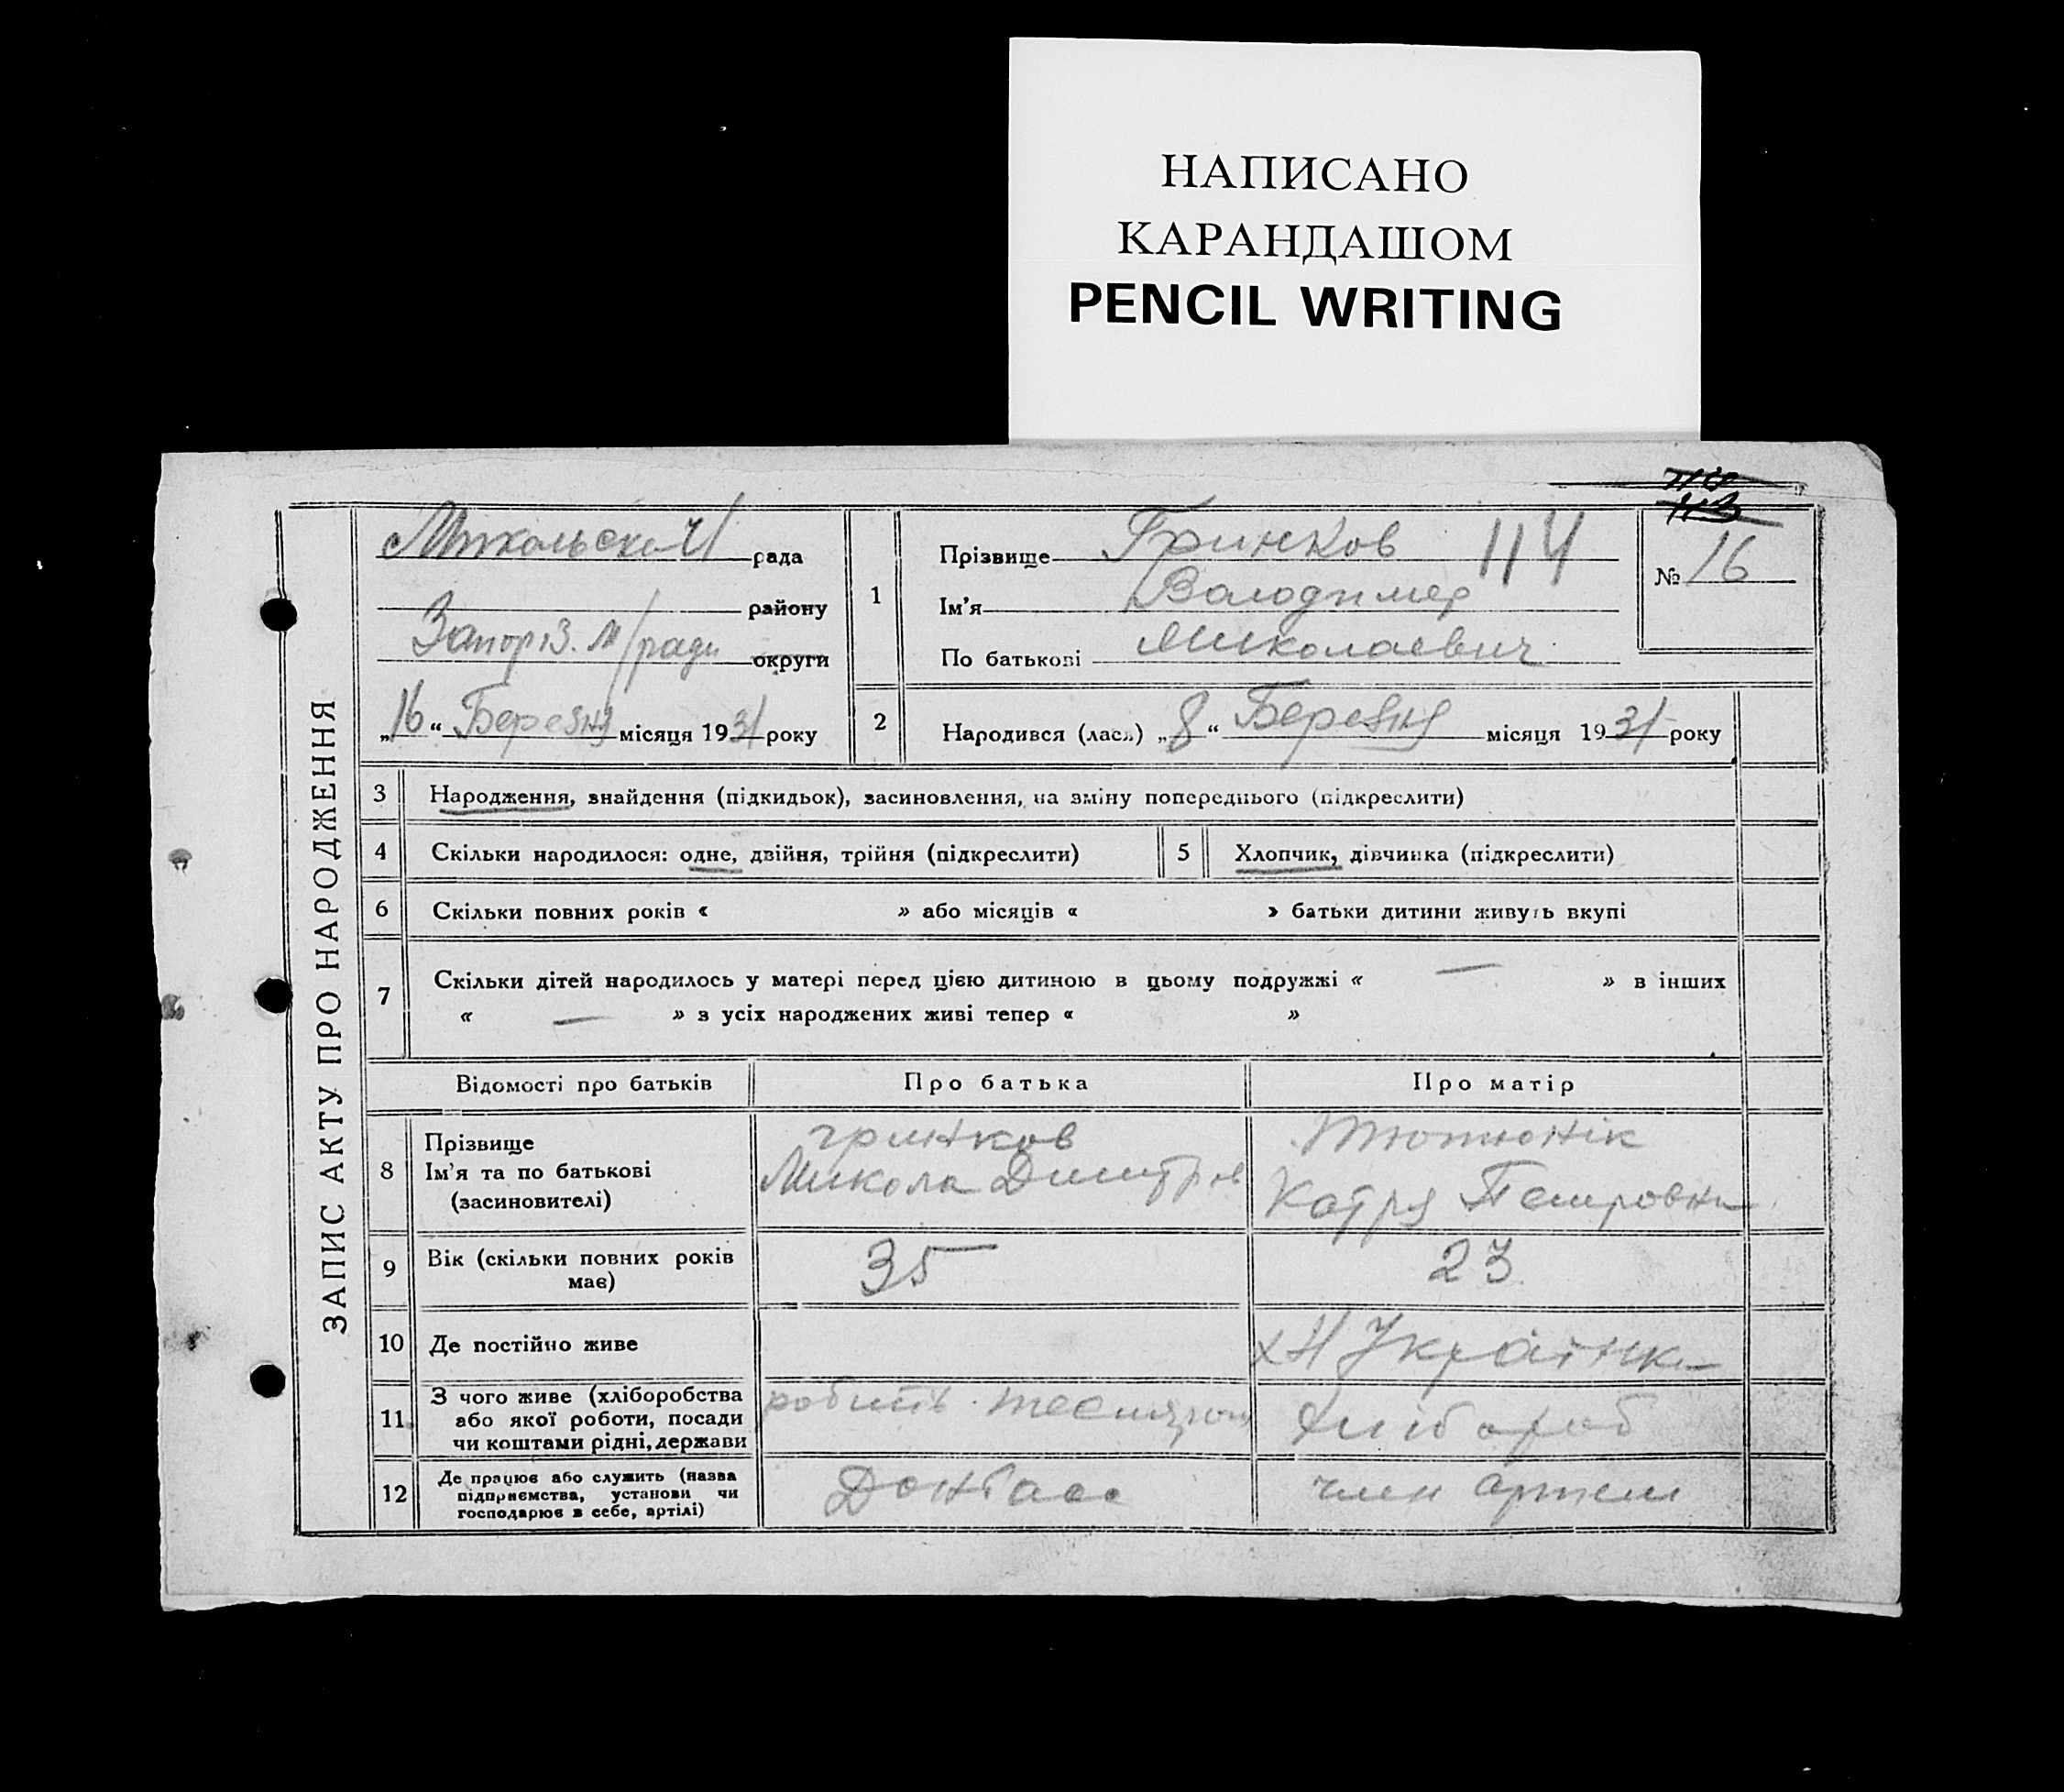 НАПИСАНО
КАРАНДАШОМ
PENCIL WRITING
ЗАПИС АКТУ ПРО НАРОДЖЕННЯ
Микольської рада
району
Запоріз. м/ради округи
„16“ Березня місяця 1931 року
1
Прізвище Гринков 114
Ім'я Володимер
По батькові Миколаевич
113
№ 16
2 Народився (лася) „8“ Березня місяця 1931 року
3 Народження, знайдення (підкидьок), засиновлення, на зміну попереднього (підкреслити)
4 Скільки народилося: одне, двійня, трійня (підкреслити) 5 Хлопчик, дівчинка (підкреслити)
6 Скільки повних років « » або місяців « » батьки дитини живуть вкупі
7 Скільки дітей народилось у матері перед цією дитиною в цьому подружжі « — » в інших
« — » з усіх народжених живі тепер « »
Відомості про батьків Про батька Про матір
8 Прізвище Ім'я та по батькові (засиновителі)
гринков
Микола Димитров
Тютюнік
Катря Петровна
9 Вік (скільки повних років має) 35 23
10 Де постійно живе хН Українка
11 З чого живе (хліборобства або якої роботи, посади чи коштами рідні, держави
робить тесляром
Хлібороб
12 Де працює або служить (назва підприємства, установи чи господарює в себе, артілі)
Донбасс
член артели